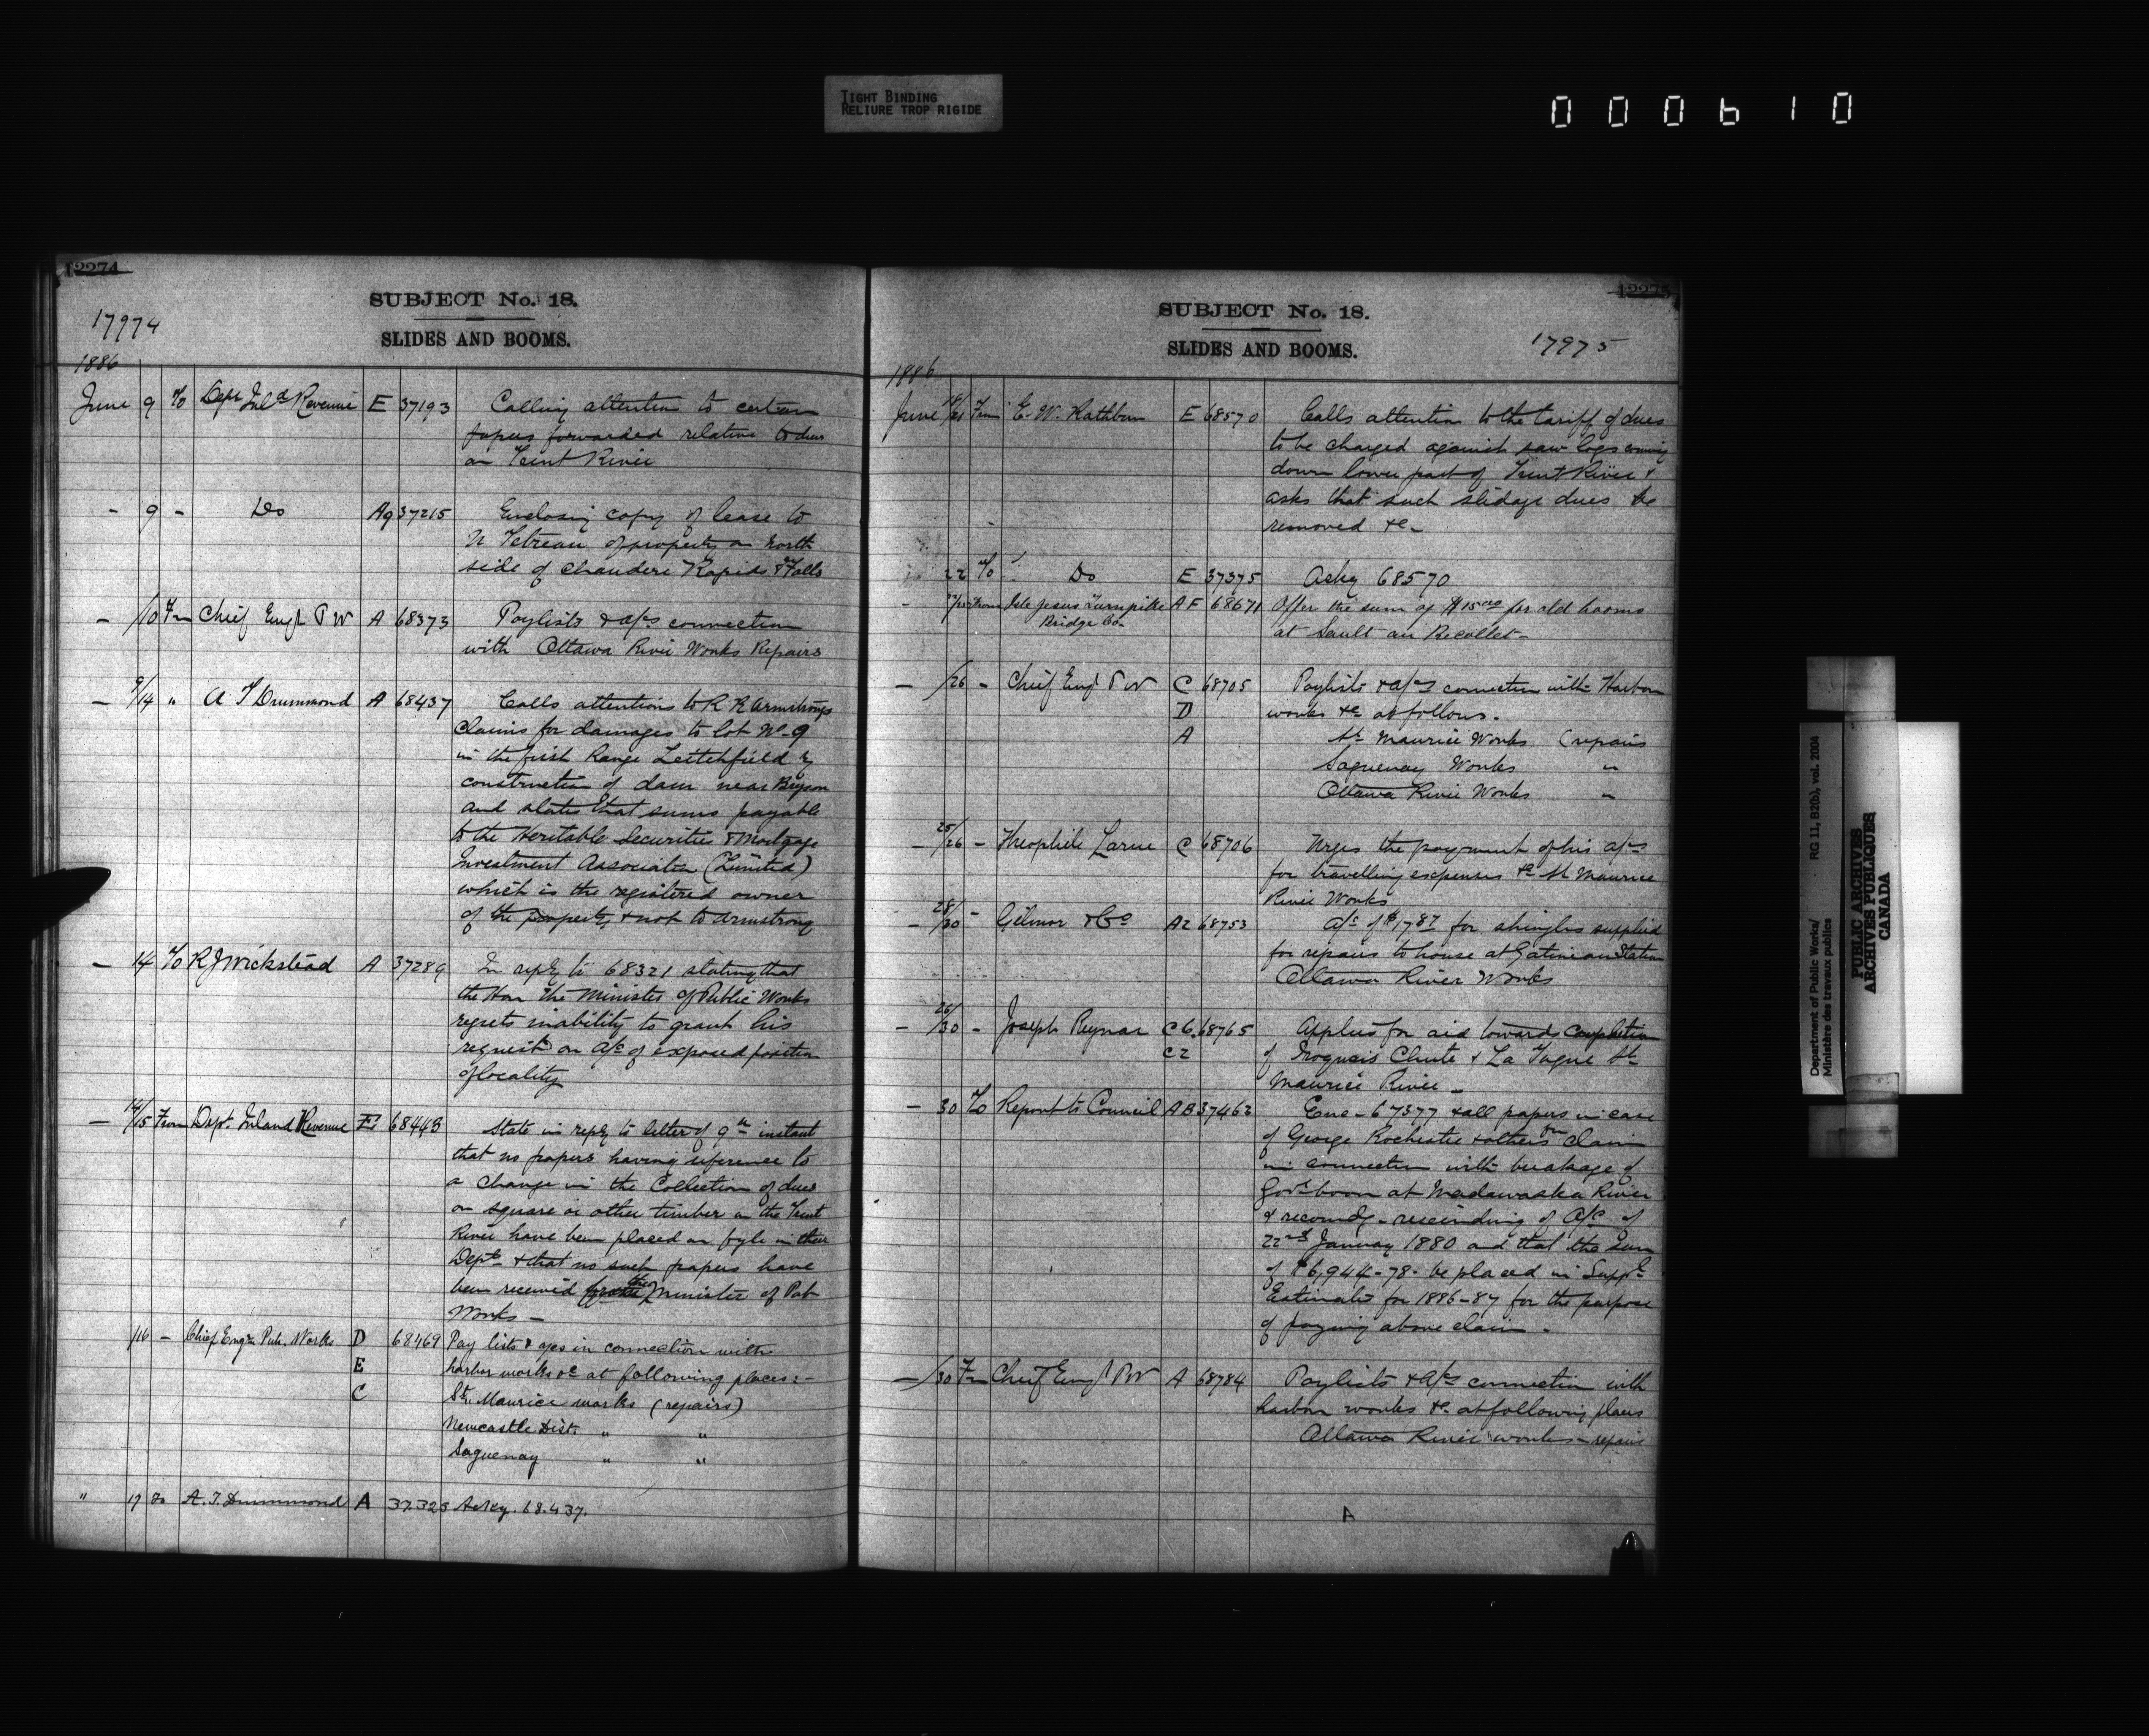 TIGHT BINDING
RELIURE TROP RIGIDE
000610
12274
SUBJECT No. 18.
17974
SLIDES AND BOOMS.
1886
June 9 To Dept Inld Revenue E 37193 Calling attention to certain
papers forwarded relative to dues
on Trent River
- 9 - Do A9 37215 Enclosing copy of lease to
N Tetreau of property on north
side of Chaudere Rapids & Falls
- /10 Fm Chief Engr P W A 68373 Paylists & a/cs connection
with Ottawa River Works Repairs
- 9/14 " A T Drummond A 68437 Calls attentions to R R Armstrongs
Claims for damages to lot No 9
in the first Range Leitchfield by
construction of dam near Bryson
and states that sums payable
to the Heritable Securities & Mortgage
Investment Association (Limited)
which is the registered owner
of the property & not to Armstrong
- 14 To R J Wickstead A 37289 In reply to 68321 stating that
the Hon The Minister of Public Works
regrets inability to grant his
request on a/c of exposed position
of locality
- 14/15 From Dept. Inland Revenue E 68448 State in reply to letter of 9th instant
that no papers having reference to
a change in the Collection of dues
on square or other timber on the Trent
River have been placed on fyle in their
Dept & that no such papers have
been received the Minister of Pub
Works -
/16 - Chief Engr. Pub. Works D 68469 Pay lists & a/cs in connection with
E harbor works &c at following places:-
C St. Maurice works (repairs)
Newcastle Dist. " "
Saguenay " "
" 17 To A. T. Drummond A 37.325 Ackg. 68.437.
12275
SUBJECT No. 18.
17975
SLIDES AND BOOMS.
1886
June 18/21 From E. W. Rathbun E 68570 Calls attention to the tariff of dues
to be charged against saw logs coming
down lower part of Trent River &
asks that such slidage dues be
removed &c-
22 To Do E 37375 Ackg 68570
- From Isle Jesus Turnpike A F 68671 Offer the sum of $15.00 for old booms
Bridge Co- at Sault au Recollet-
- /26 - Chief Engr P W C 68705 Paylists & a/cs connection with Harbor
D works &c as follows.
A St Maurice Works (repairs
Saguenay Works "
Ottawa River Works "
- 25/26 - Theophile Larue C 68706 Urges the payment of his a/cs
for travelling expenses &c St Maurice
River Works
- 28/30 - Gilmor & Co A2 68753 a/c of for shingles supplied
for repairs to house at Gatineau Station
Ottawa River Works
- 26/30 - Joseph Reynar C 6. 68765 Applies for aid towards completion
C2 of Iroquois Chute & La Tuque St
Maurice River -
- 30 To Report to Council A B 37462 Enc- 67377 & all papers in case
of George Rochester & others for claim
in connection with breakage of
Govt boom at Madawaska River
& recomdg - rescinding of O/C of
22nd January 1880 and that the sum
of $6,944-78- be placed in Supply
Estimates for 1886-87 for the purpose
of paying above claim -
- /30 Fm Chief Engr P W A 68784 Paylists & a/cs connection with
harbor works &c at following places
Ottawa River works - repairs
A
Department of Public Works/
Ministère des travaux publics
RG 11, B2(b), vol. 2004
PUBLIC ARCHIVES
ARCHIVES PUBLIQUES
CANADA